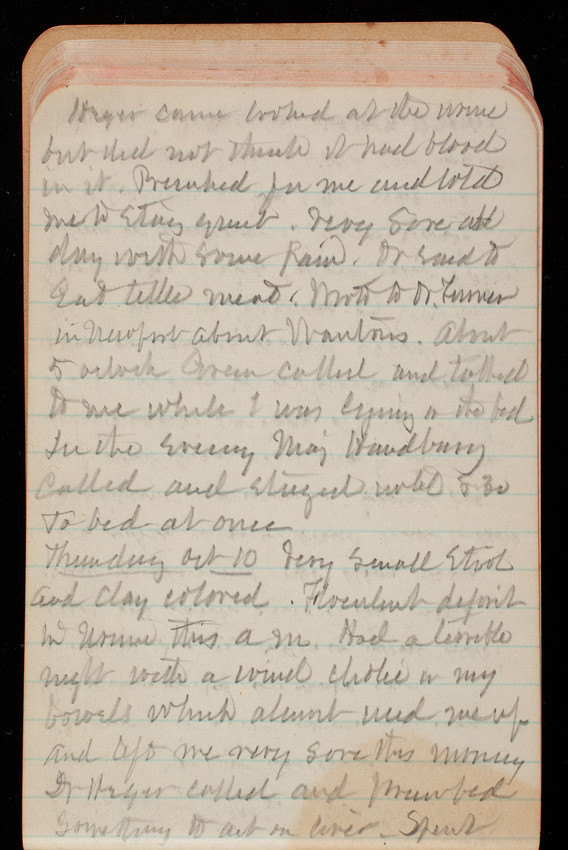 Heger came looked at the urine
but did not think it had blood
in it. Prescribed for me and told
me to stay quiet. Very sore all
day with some pain. Dr said to
Eat little meat. Wrote to Dr. Turner
in Newport about Wantons. About
5 oclock Green called and talked
to me while I was lying on the bed
In the Evening Maj Handbury
Called and stayed until 8 30
To bed at once
Thursday Oct 10 Very small stool
and clay colored. Floculent deposit
in Urine this a m. Had a terrible
night with a wind cholic in my
bowels which almost used me up
and left me very sore this morning
Dr Heger called and prescribed
Something to act on liver. Spent